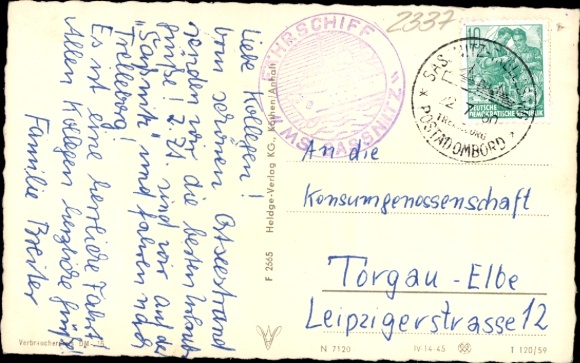 Liebe Kollegen!
Vom schönen Ostseestrand
senden wir die besten Urlaubs-
grüße! Z. Zt. sind wir auf der
"Sassnitz" und fahren nach
Trelleborg.
Es ist eine herrliche Fahrt!
Allen Kollegen herzliche Grüße
Familie Breiter
Verbraucherpreis DM
F 2665 Heldge-Verlag KG., Köthen/Anhalt
2337
FÄHRSCHIFF
MS "SASSNITZ"
SASSNITZ
TRELLEBORG
POSTADOMBORD
10
DEUTSCHE
DEMOKRATISCHE REPUBLIK
An die
Konsumgenossenschaft
Torgau-Elbe
Leipzigerstrasse 12
N 7120
IV-14-45
T 120/59